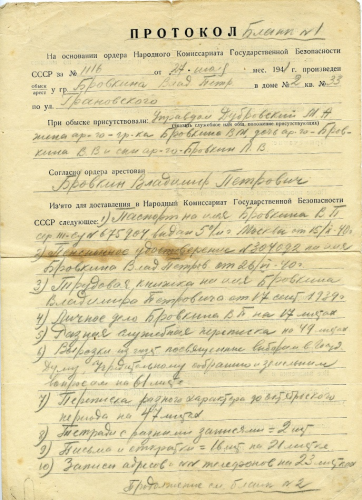 ПРОТОКОЛ Бланк №1
На основании ордера Народного Комиссариата Государственной Безопасности
СССР за № 1116 от 27 мес. 1941 произведен
обыск
арест у гр. Бровкина Влад Петр в доме № 2 кв. 23
по ул. Грановского
При обыске присутствовали: Управдом Дубровский М А
(указать служебное или обш. положение присутствов.)
жена ар-го гр-ка Бровкина В М, дочь ар-го Бров-
кина В В и сын ар-го Бровкин Л В
Согласно ордера арестован
Бровкин Владимир Петрович
Изято для доставления в Народный Комиссариат Государственной Безопасности
СССР следующее: 1) Паспорт на имя Бровкина В П
№ 675904 выдан 54 о/м Москва от 15/ 40г
2) удостоверение № 204692 на имя
Бровкина Влад Петров от 26/ 40г.
3) Трудовая книжка на имя Бровкина
Владимира Петровича от 17 сент 1939г
4) Личное дело Бровкина В П на 17 листах
5) Разная служебная переписка на 49 листах
6) Вырезки из газет посвященные выборам в
думу. Учредительному собранию и земельным
вопросам на 61 листе
7) Переписка разного характера до октябрьского
периода на 47 листах
8) Тетради с разными записями = 2 шт
9) Письма и открытки = 16 шт на 21 листах
10) Записи адресов и № телефонов на 23 листках
Продолжение см. бланк № 2